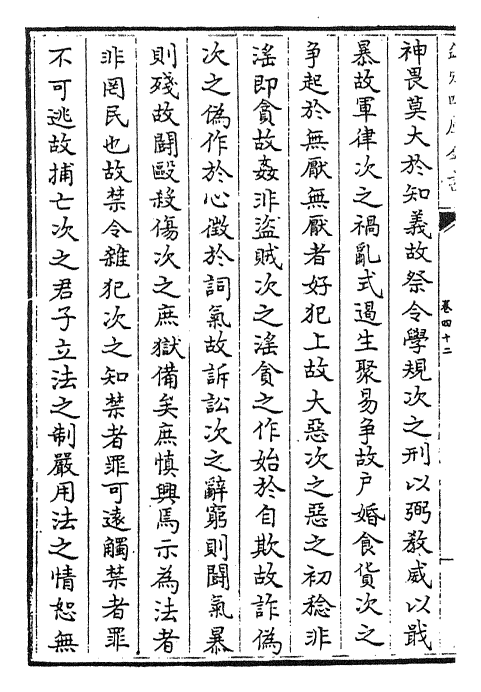 欽定四庫全書
卷四十二
神畏莫大於知義故祭令學規次之刑以弼教威以戢
暴故軍律次之禍亂式遏生聚易争故户婚食貨次之
争起於無厭無厭者好犯上故大惡次之惡之初稔非
滛即貪故姦非盜賊次之滛貪之作始於自欺故詐偽
次之偽作於心徵於詞氣故訴訟次之辭窮則鬪氣暴
則殘故鬪毆殺傷次之庶獄備矣庶慎興焉示為法者
非罔民也故禁令雜犯次之知禁者罪可遠觸禁者罪
不可逃故捕亡次之君子立法之制嚴用法之情恕無